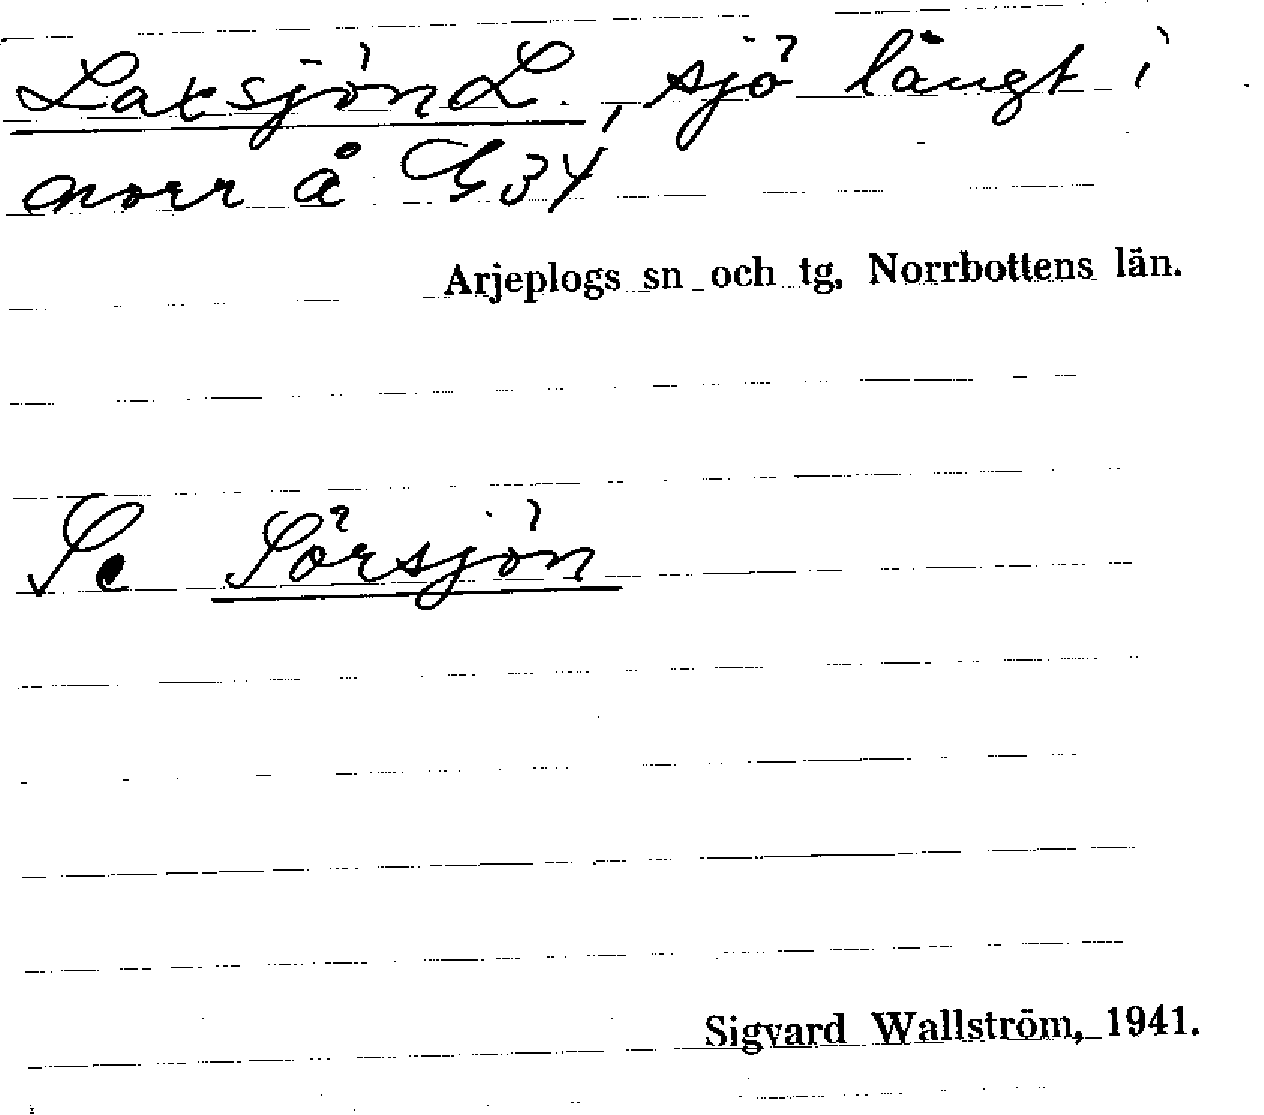 Laxsjön L., sjö långt i
norr å G34
Arjeplogs sn och tg, Norrbottens län.
Se Sörsjön
Sigvard Wallström, 1941.